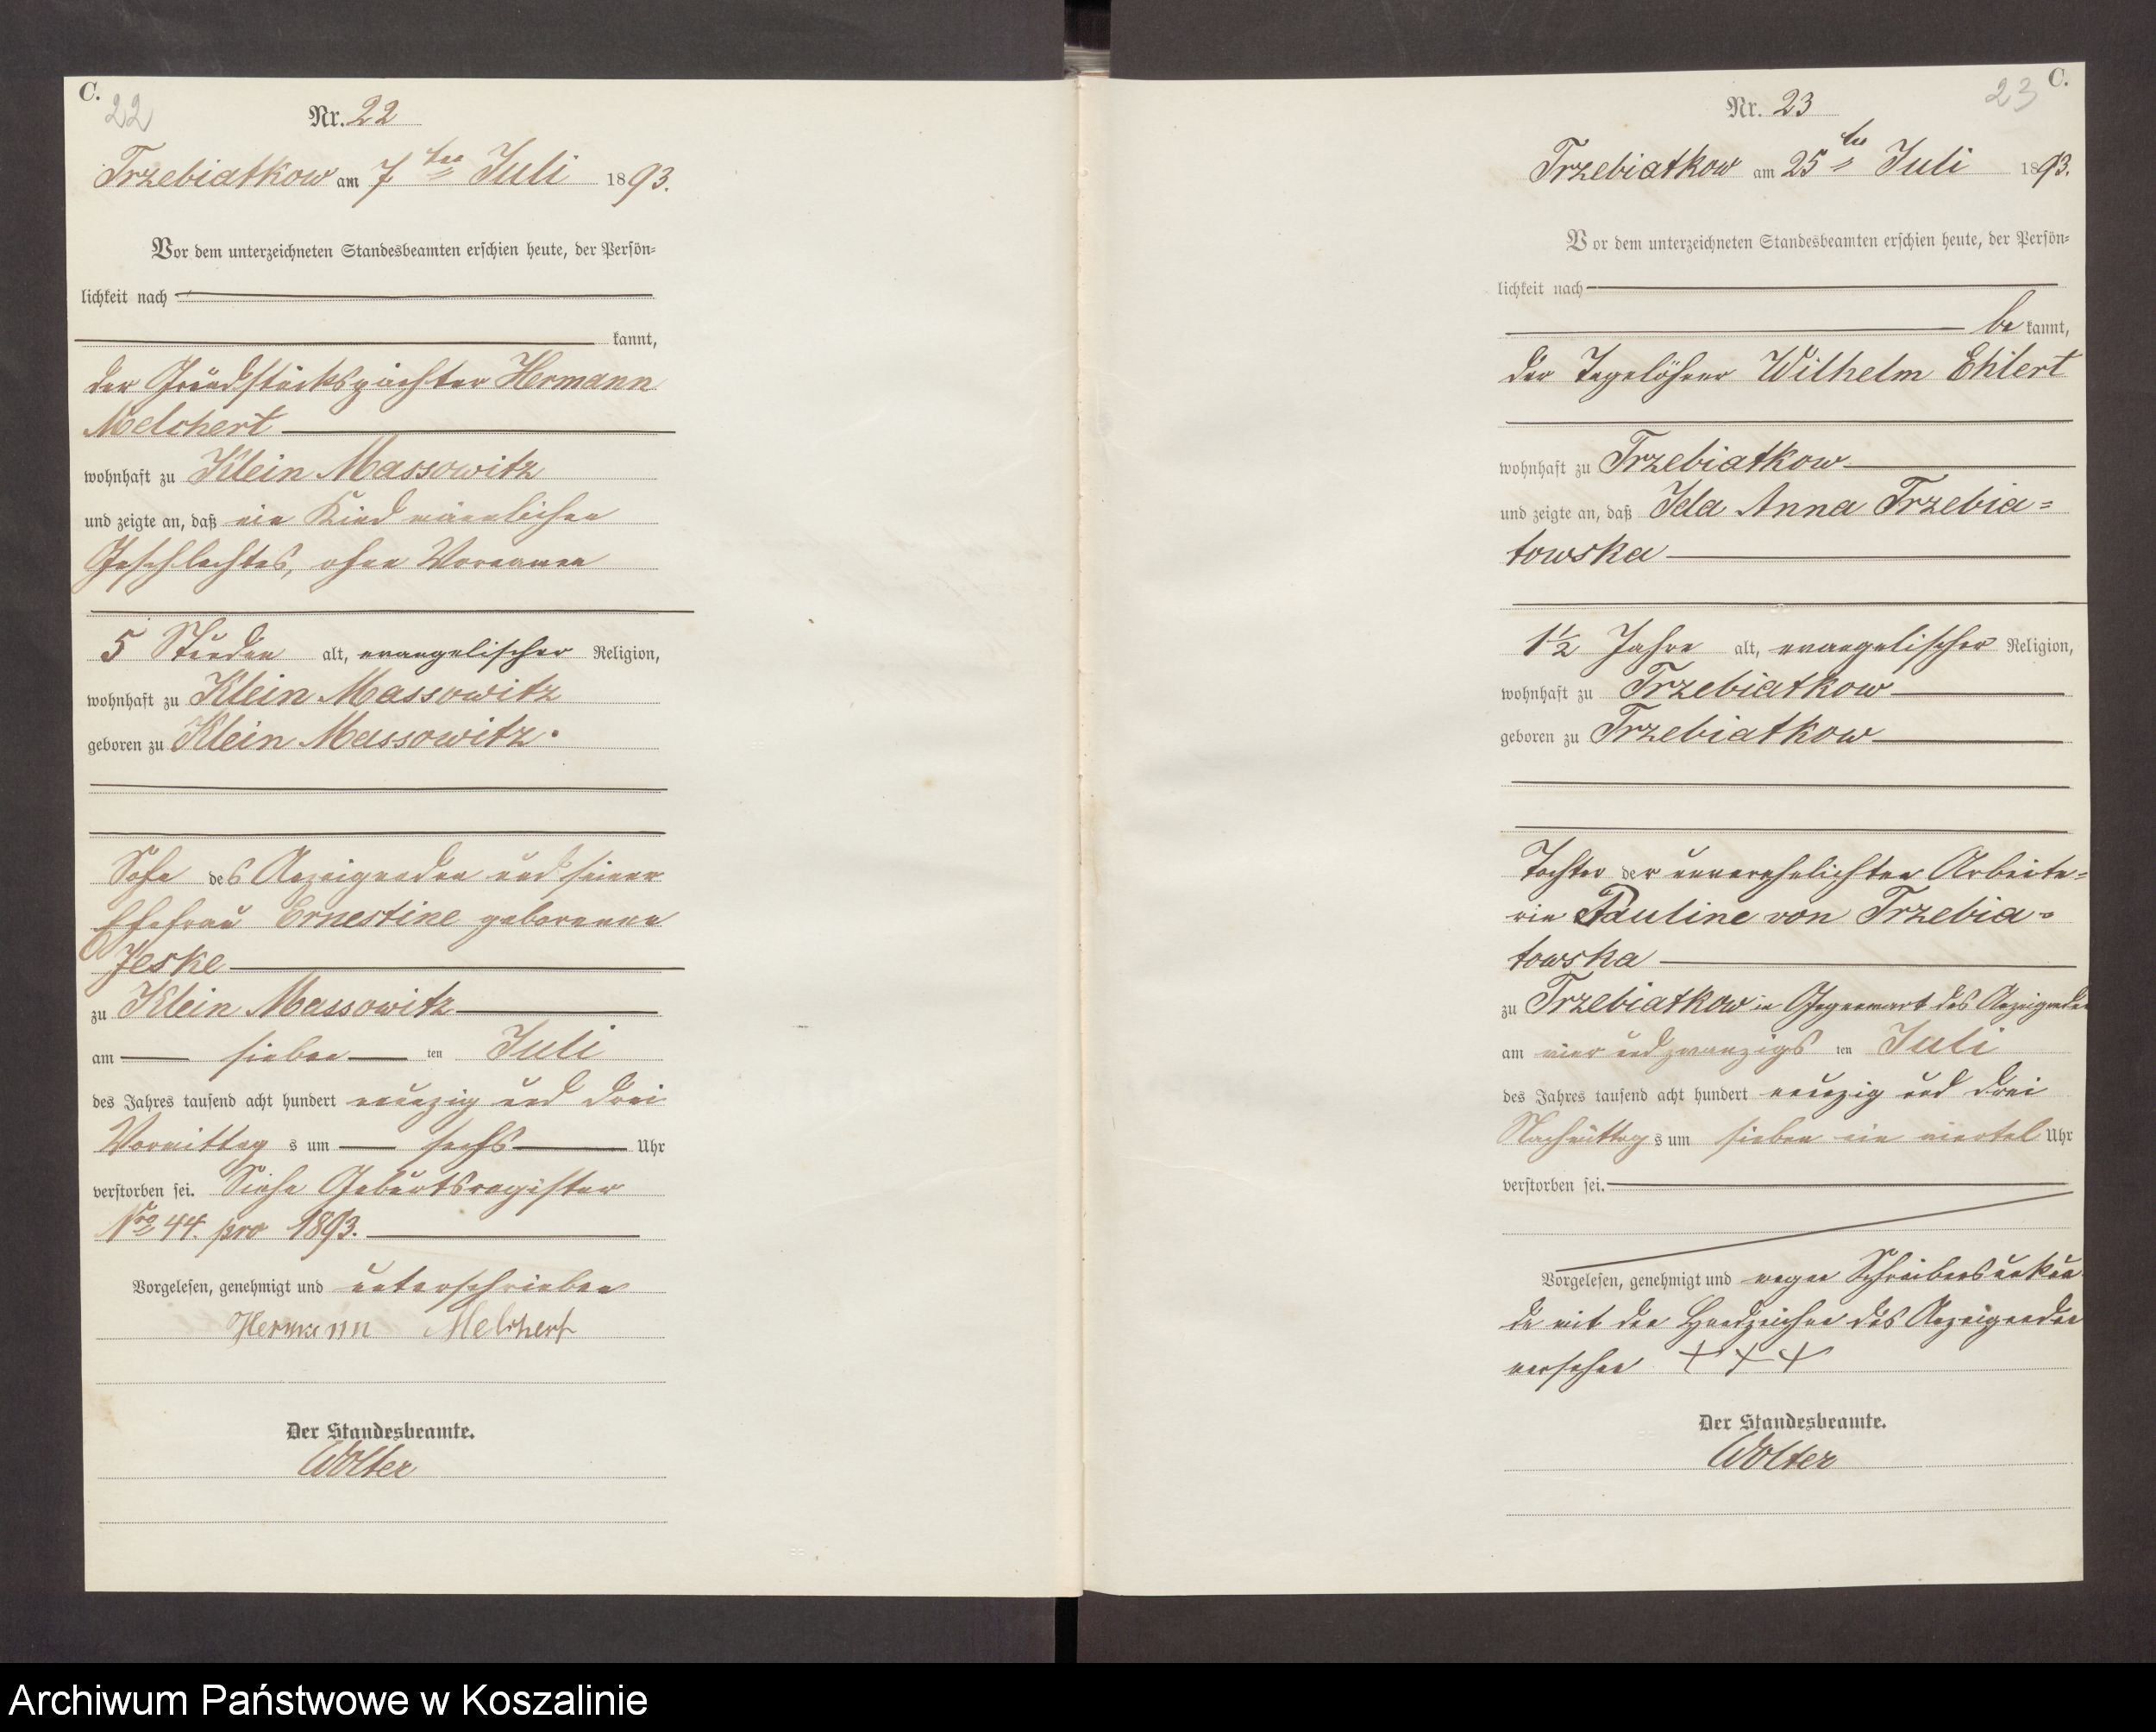 C.
22
Nr. 22
Trzebiatkow am 7 ten Juli 1893.
Vor dem unterzeichneten Standesbeamten erschien heute, der Persön-
lichkeit nach
kannt,
der Grundstückspächter Hermann
Melchert
wohnhaft zu Klein Massowitz
und zeigte an, daß ein Kind männlichen
Geschlechtes, ohne Vornamen
5 Stunden alt, evangelischer Religion,
wohnhaft zu Klein Massowitz
geboren zu Klein Massowitz.
Sohn des Anzeigenden und seiner
Ehefrau Ernestine geborenen
Jeske
zu Klein Massowitz
am sieben ten Juli
des Jahres tausend acht hundert neunzig und drei
Vormittag s um sechs Uhr
verstorben sei. Siehe Geburtsregister
Nro 44. pro 1893.
Vorgelesen, genehmigt und unterschrieben
Hermann Melchert
Der Standesbeamte.
Wolter
23
C.
Nr. 23
Trzebiatkow am 25 ten Juli 1893.
Vor dem unterzeichneten Standesbeamten erschien heute, der Persön-
lichkeit nach
be kannt,
der Tagelöhner Wilhelm Ehlert
wohnhaft zu Trzebiatkow
und zeigte an, daß Ida Anna Trzebia=
towska
1½ Jahre alt, evangelischer Religion,
wohnhaft zu Trzebiatkow
geboren zu Trzebiatkow
Tochter der unverehelichten Arbeite=
rin Pauline von Trzebia=
towska
zu Trzebiatkow in Gegenwart des Anzeigenden
am vier und zwanzigs ten Juli
des Jahres tausend acht hundert neunzig und drei
Nachmittag s um sieben ein viertel Uhr
verstorben sei.
Vorgelesen, genehmigt und wegen Schreibensunkun
de mit den Handzeichen des Anzeigenden
versehen + + +
Der Standesbeamte.
Wolter
Archiwum Państwowe w Koszalinie